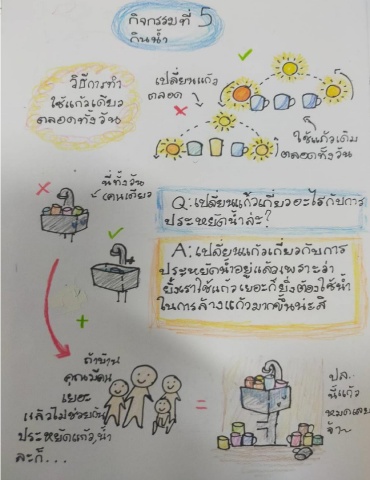 กิจกรรมที่ 5
กินน้ำ
วิธีการทำ
ใช้แก้วเดียว
ตลอดทั้งวัน
เปลี่ยนแก้ว
ตลอด
ใช้แก้วเดิม
ตลอดทั้งวัน
นี่ทั้งวัน
คนเดียว
Q:เปลี่ยนแก้วเกี่ยวอะไรกับการ
ประหยัดน้ำล่ะ?
A:เปลี่ยนแก้วเกี่ยวกับการ
ประหยัดน้ำอยู่แล้วเพราะว่า
ยิ่งเราใช้แก้วเยอะก็ยิ่งต้องใช้น้ำ
ในการล้างแก้วมากขึ้นน่ะสิ
ถ้าบ้าน
คุณมีคน
เยอะ
แล้วไม่ช่วยกัน
ประหยัดแก้ว,น้ำ
ละก็...
=
ปล.
นี่แก้ว
หมดเลย
จ้า~